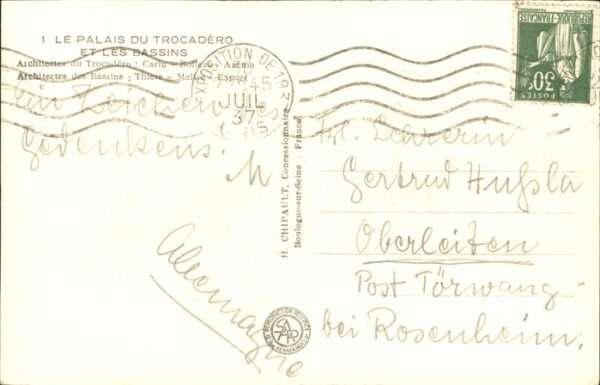 1 LE PALAIS DU TROCADÉRO
ET LES BASSINS
Architectes du Trocadéro : Carlu - Boileau - Azéma
Architectes des Bassins ; Thiers - Expert
Ein Zeichen des
Gedenkens.
M
EXPOSITION DE 1937
JUIL
37
H. CHIPAULT, Concessionnaire
Boulogne-sur-Seine - France
Allemagne
POSTES
30c
Frl. Lehrerin
Gertrud
Oberleiten
Post Törwang
bei Rosenheim.